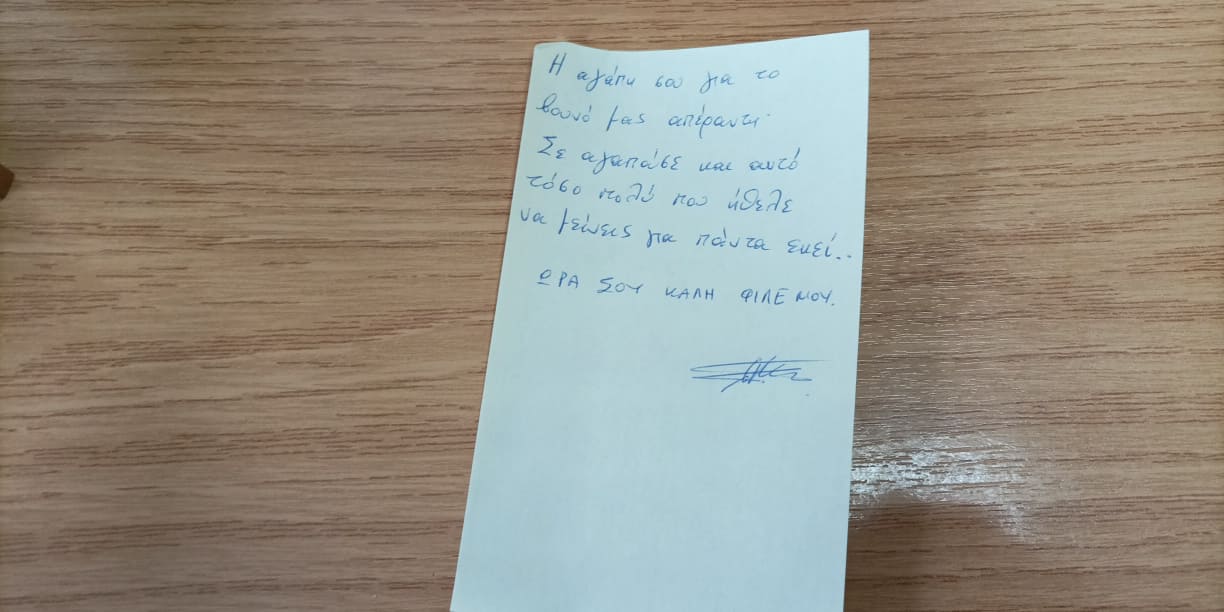 Η αγάπη σου για το
βουνό μας απέραντη.
Σε αγαπούσε και αυτό
τόσο πολύ που ήθελε
να μείνεις για πάντα εκεί..
ΩΡΑ ΣΟΥ ΚΑΛΗ ΦΙΛΕ ΜΟΥ.